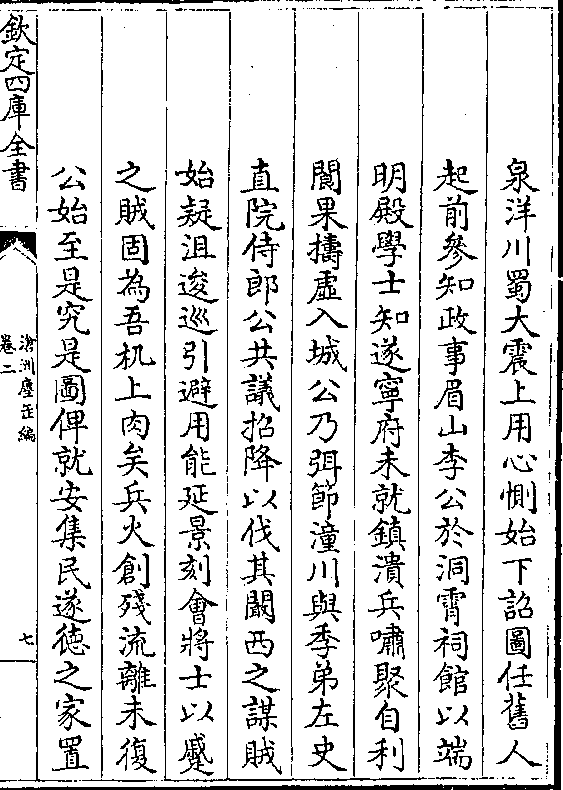 泉洋川蜀大震上用心惻始下詔圖任舊人
起前參知政事眉山李公於洞霄祠館以端
明殿學士知遂寧府未就鎮潰兵嘯聚自利
閬果擣虛入城公乃弭節潼川與季弟左史
直院侍郎公共議招降以伐其闞西之謀賊
始疑沮逡巡引避用能延景刻會將士以蹙
之賊固為吾机上肉矣兵火創殘流離未復
公始至是究是圖俾就安集民遂德之家置
欽定四庫全書
滄洲塵缶編
卷二
七